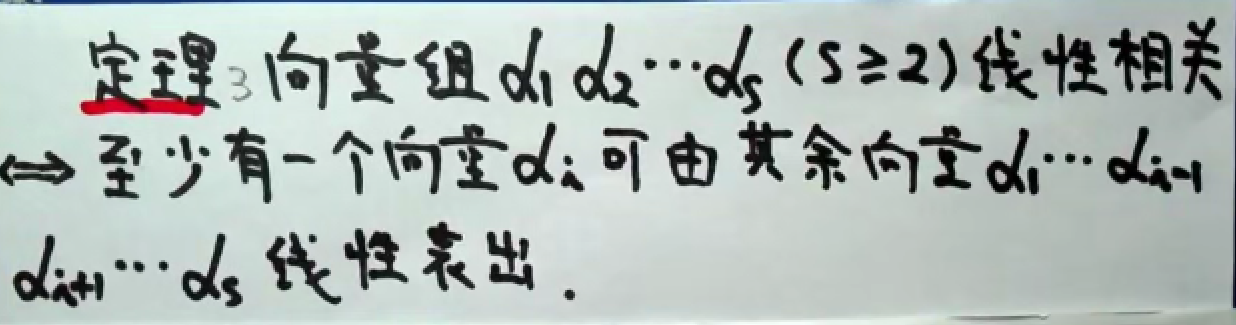 定理3 向量组 α₁ α₂ ⋯ αₛ (S≥2) 线性相关
⟺ 至少有一个向量 αᵢ 可由其余向量 α₁ ⋯ αᵢ₋₁
αᵢ₊₁ ⋯ αₛ 线性表出.